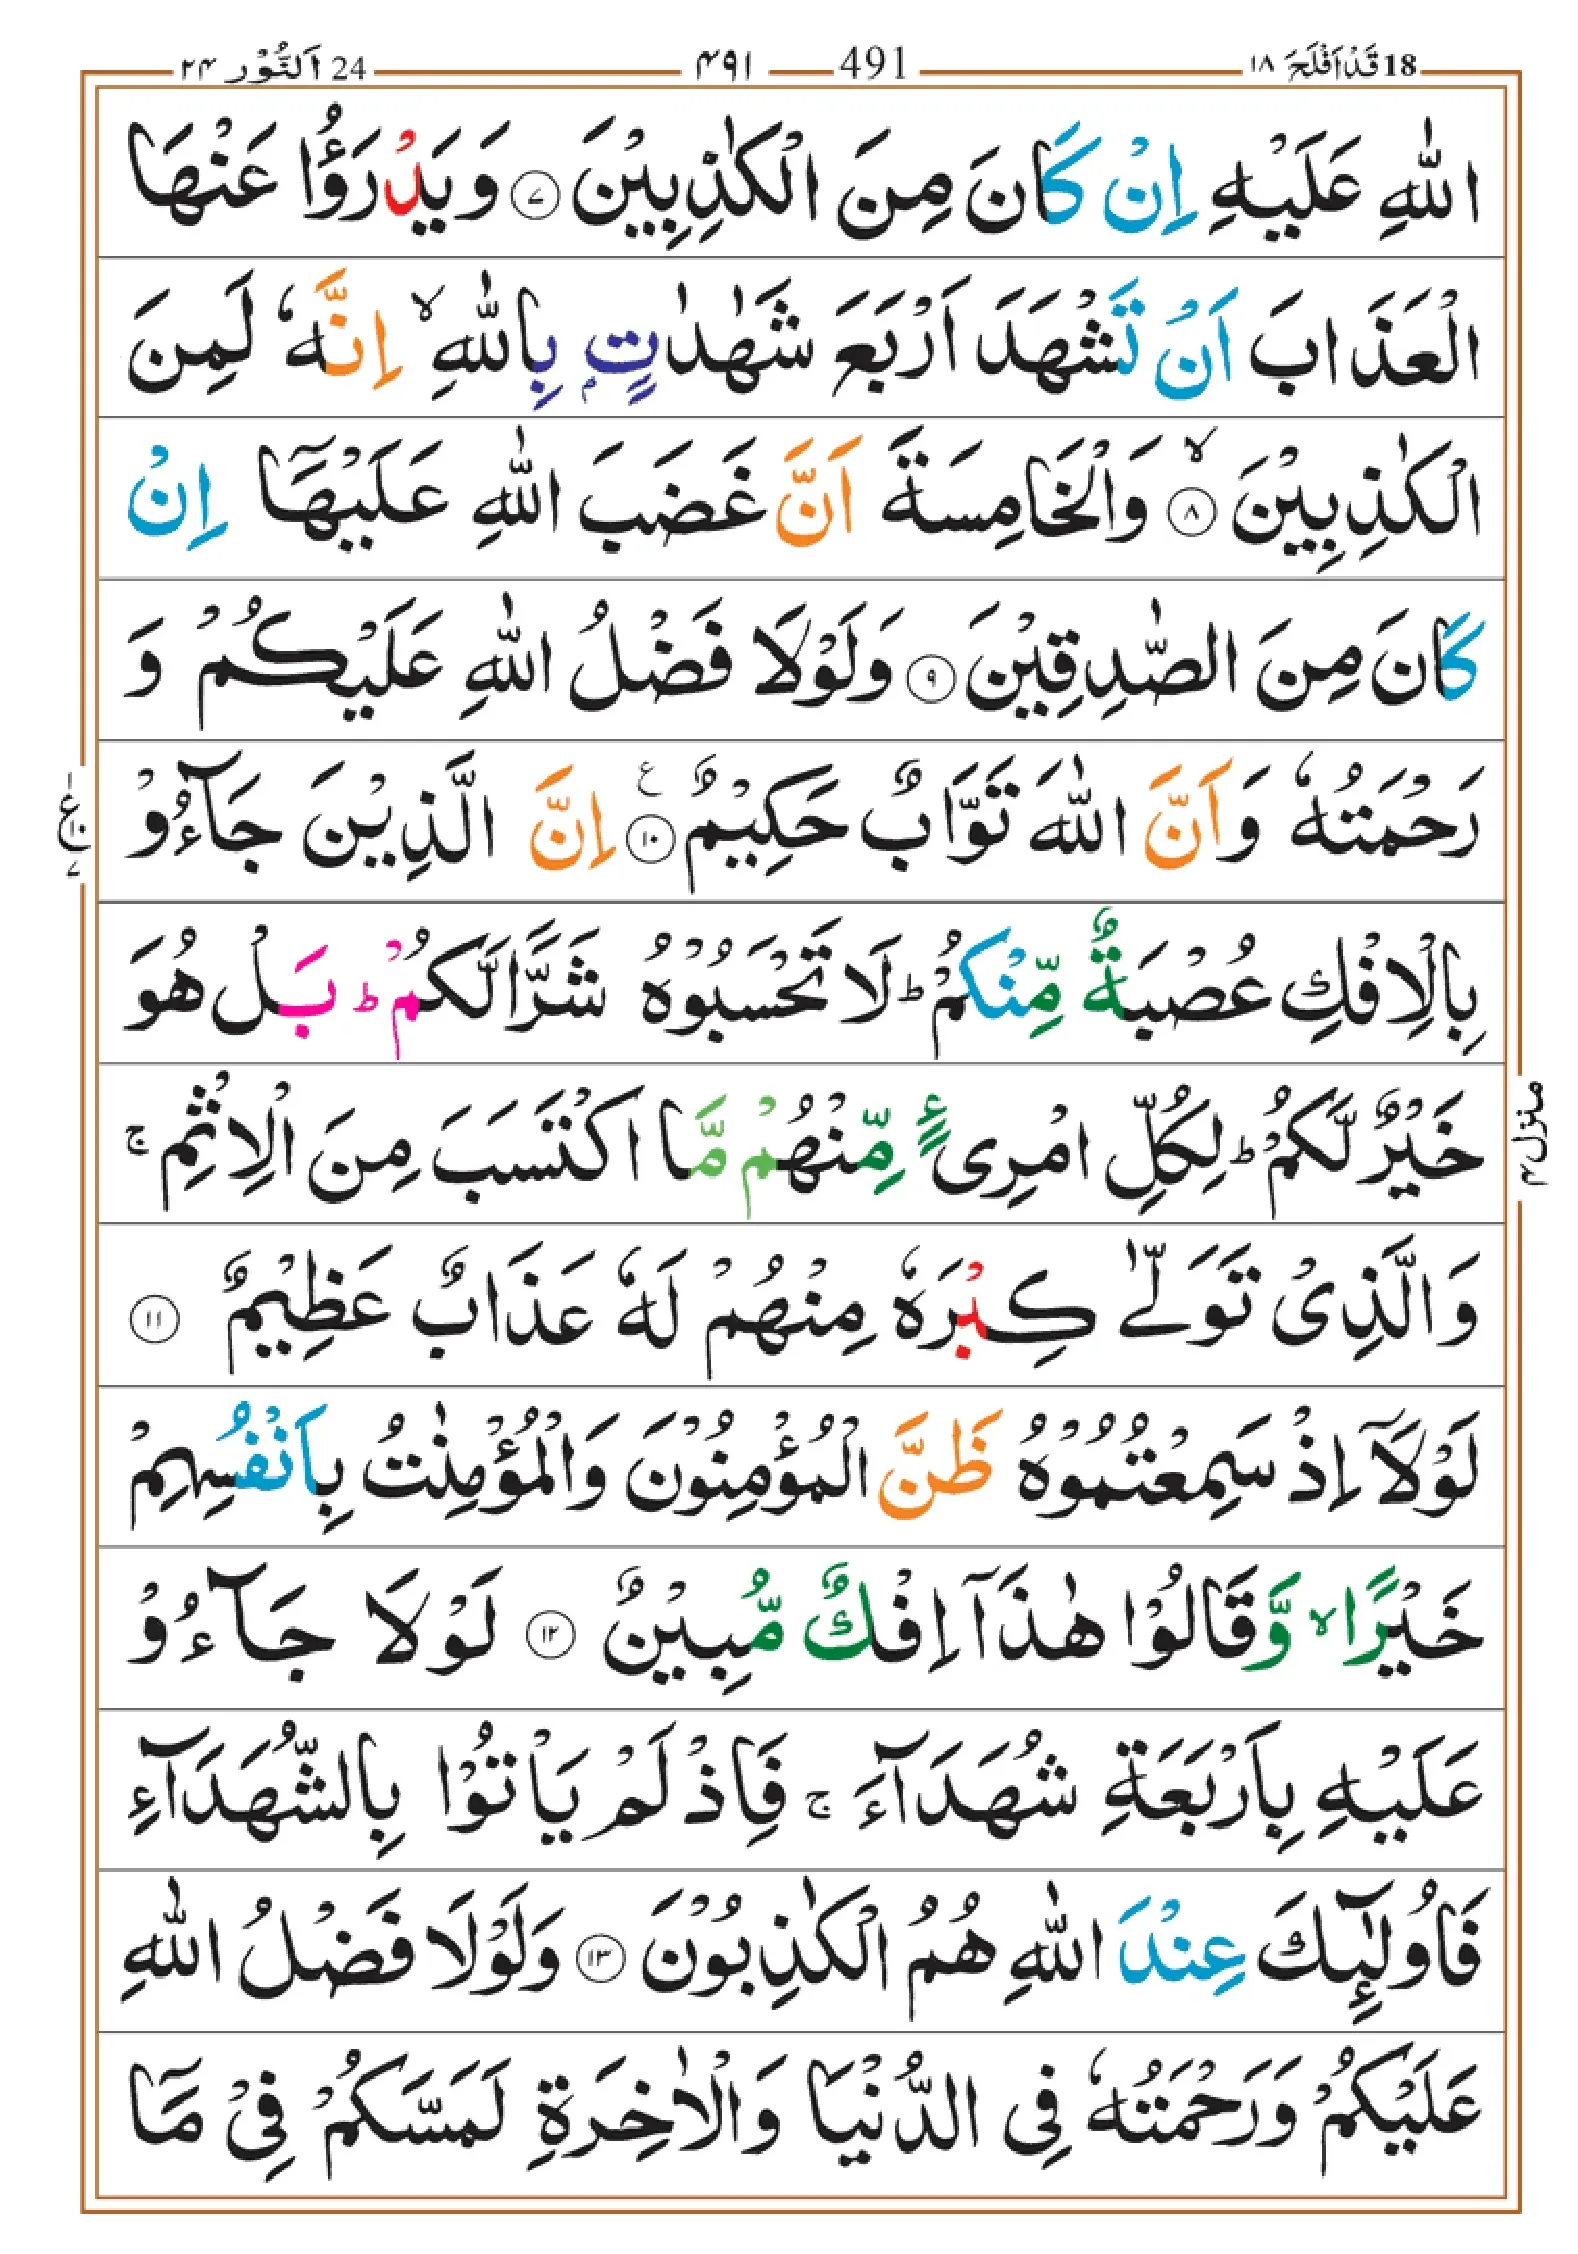 18 قَدْ اَفْلَحَ ۱۸ 491 ۴۹۱ 24 اَلنُّوْر ۲۴
اللّٰهِ عَلَيْهِ اِنْ كَانَ مِنَ الْكٰذِبِيْنَ ۷ وَيَدْرَؤُا عَنْهَا
الْعَذَابَ اَنْ تَشْهَدَ اَرْبَعَ شَهٰدٰتٍۭ بِاللّٰهِ ۙ اِنَّهٗ لَمِنَ
الْكٰذِبِيْنَ ۙ ۸ وَالْخَامِسَةَ اَنَّ غَضَبَ اللّٰهِ عَلَيْهَاۤ اِنْ
كَانَ مِنَ الصّٰدِقِيْنَ ۹ وَلَوْلَا فَضْلُ اللّٰهِ عَلَيْكُمْ وَ
رَحْمَتُهٗ وَاَنَّ اللّٰهَ تَوَّابٌ حَكِيْمٌ ۱۰ ع اِنَّ الَّذِيْنَ جَآءُوْ
ع ۱۰ ۷
بِالْاِفْكِ عُصْبَةٌ مِّنْكُمْ ؕ لَا تَحْسَبُوْهُ شَرًّا لَّكُمْ ؕ بَلْ هُوَ
خَيْرٌ لَّكُمْ ؕ لِكُلِّ امْرِئٍ مِّنْهُمْ مَّا اكْتَسَبَ مِنَ الْاِثْمِ ۚ
منزل ۴
وَالَّذِىْ تَوَلّٰى كِبْرَهٗ مِنْهُمْ لَهٗ عَذَابٌ عَظِيْمٌ ۱۱
لَوْلَاۤ اِذْ سَمِعْتُمُوْهُ ظَنَّ الْمُؤْمِنُوْنَ وَالْمُؤْمِنٰتُ بِاَنْفُسِهِمْ
خَيْرًا ۙ وَّقَالُوْا هٰذَاۤ اِفْكٌ مُّبِيْنٌ ۱۲ لَوْلَا جَآءُوْ
عَلَيْهِ بِاَرْبَعَةِ شُهَدَآءَ ۚ فَاِذْ لَمْ يَاْتُوْا بِالشُّهَدَآءِ
فَاُولٰٓئِكَ عِنْدَ اللّٰهِ هُمُ الْكٰذِبُوْنَ ۱۳ وَلَوْلَا فَضْلُ اللّٰهِ
عَلَيْكُمْ وَرَحْمَتُهٗ فِى الدُّنْيَا وَالْاٰخِرَةِ لَمَسَّكُمْ فِىْ مَاۤ